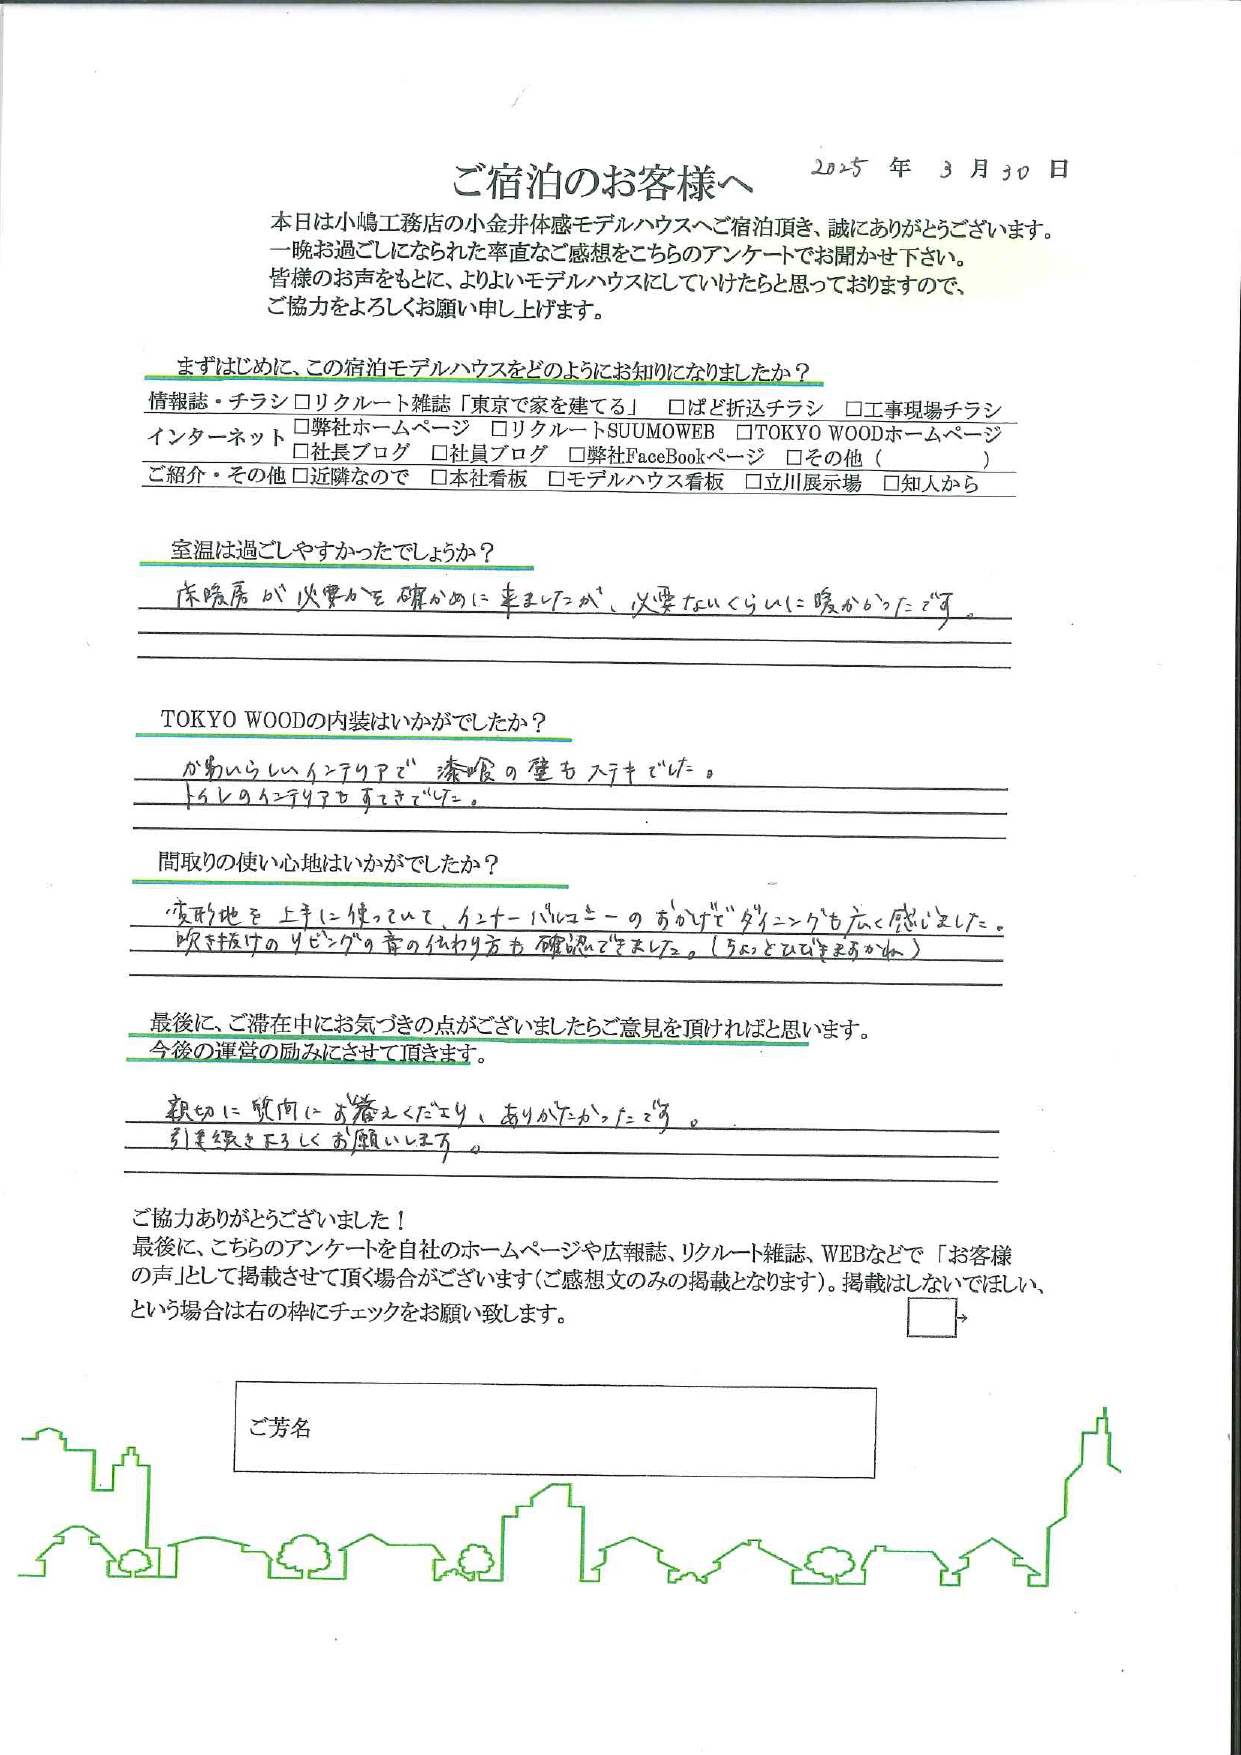 2025 年 3 月 30 日
ご宿泊のお客様へ
本日は小嶋工務店の小金井体感モデルハウスへご宿泊頂き、誠にありがとうございます。
一晩お過ごしになられた率直なご感想をこちらのアンケートでお聞かせ下さい。
皆様のお声をもとに、よりよいモデルハウスにしていけたらと思っておりますので、
ご協力をよろしくお願い申し上げます。
まずはじめに、この宿泊モデルハウスをどのようにお知りになりましたか?
情報誌・チラシ □リクルート雑誌「東京で家を建てる」 □ぱど折込チラシ □工事現場チラシ
インターネット □弊社ホームページ □リクルートSUUMOWEB □TOKYO WOODホームページ
□社長ブログ □社員ブログ □弊社FaceBookページ □その他 ( )
ご紹介・その他 □近隣なので □本社看板 □モデルハウス看板 □立川展示場 □知人から
室温は過ごしやすかったでしょうか?
床暖房が必要かを確かめに来ましたが、必要ないくらいに暖かかったです。
TOKYO WOODの内装はいかがでしたか?
かわいらしいインテリアで漆喰の壁もステキでした。
トイレのインテリアもすてきでした。
間取りの使い心地はいかがでしたか?
変形地を上手に使っていて、インナーバルコニーのおかげでダイニングも広く感じました。
吹き抜けのリビングの音の伝わり方も確認できました。(ちょっとひびきますかね)
最後に、ご滞在中にお気づきの点がございましたらご意見を頂ければと思います。
今後の運営の励みにさせて頂きます。
親切に質問にお答えくださり、ありがたかったです。
引き続きよろしくお願いします。
ご協力ありがとうございました!
最後に、こちらのアンケートを自社のホームページや広報誌、リクルート雑誌、WEBなどで「お客様
の声」として掲載させて頂く場合がございます(ご感想文のみの掲載となります)。掲載はしないでほしい、
という場合は右の枠にチェックをお願い致します。
ご芳名